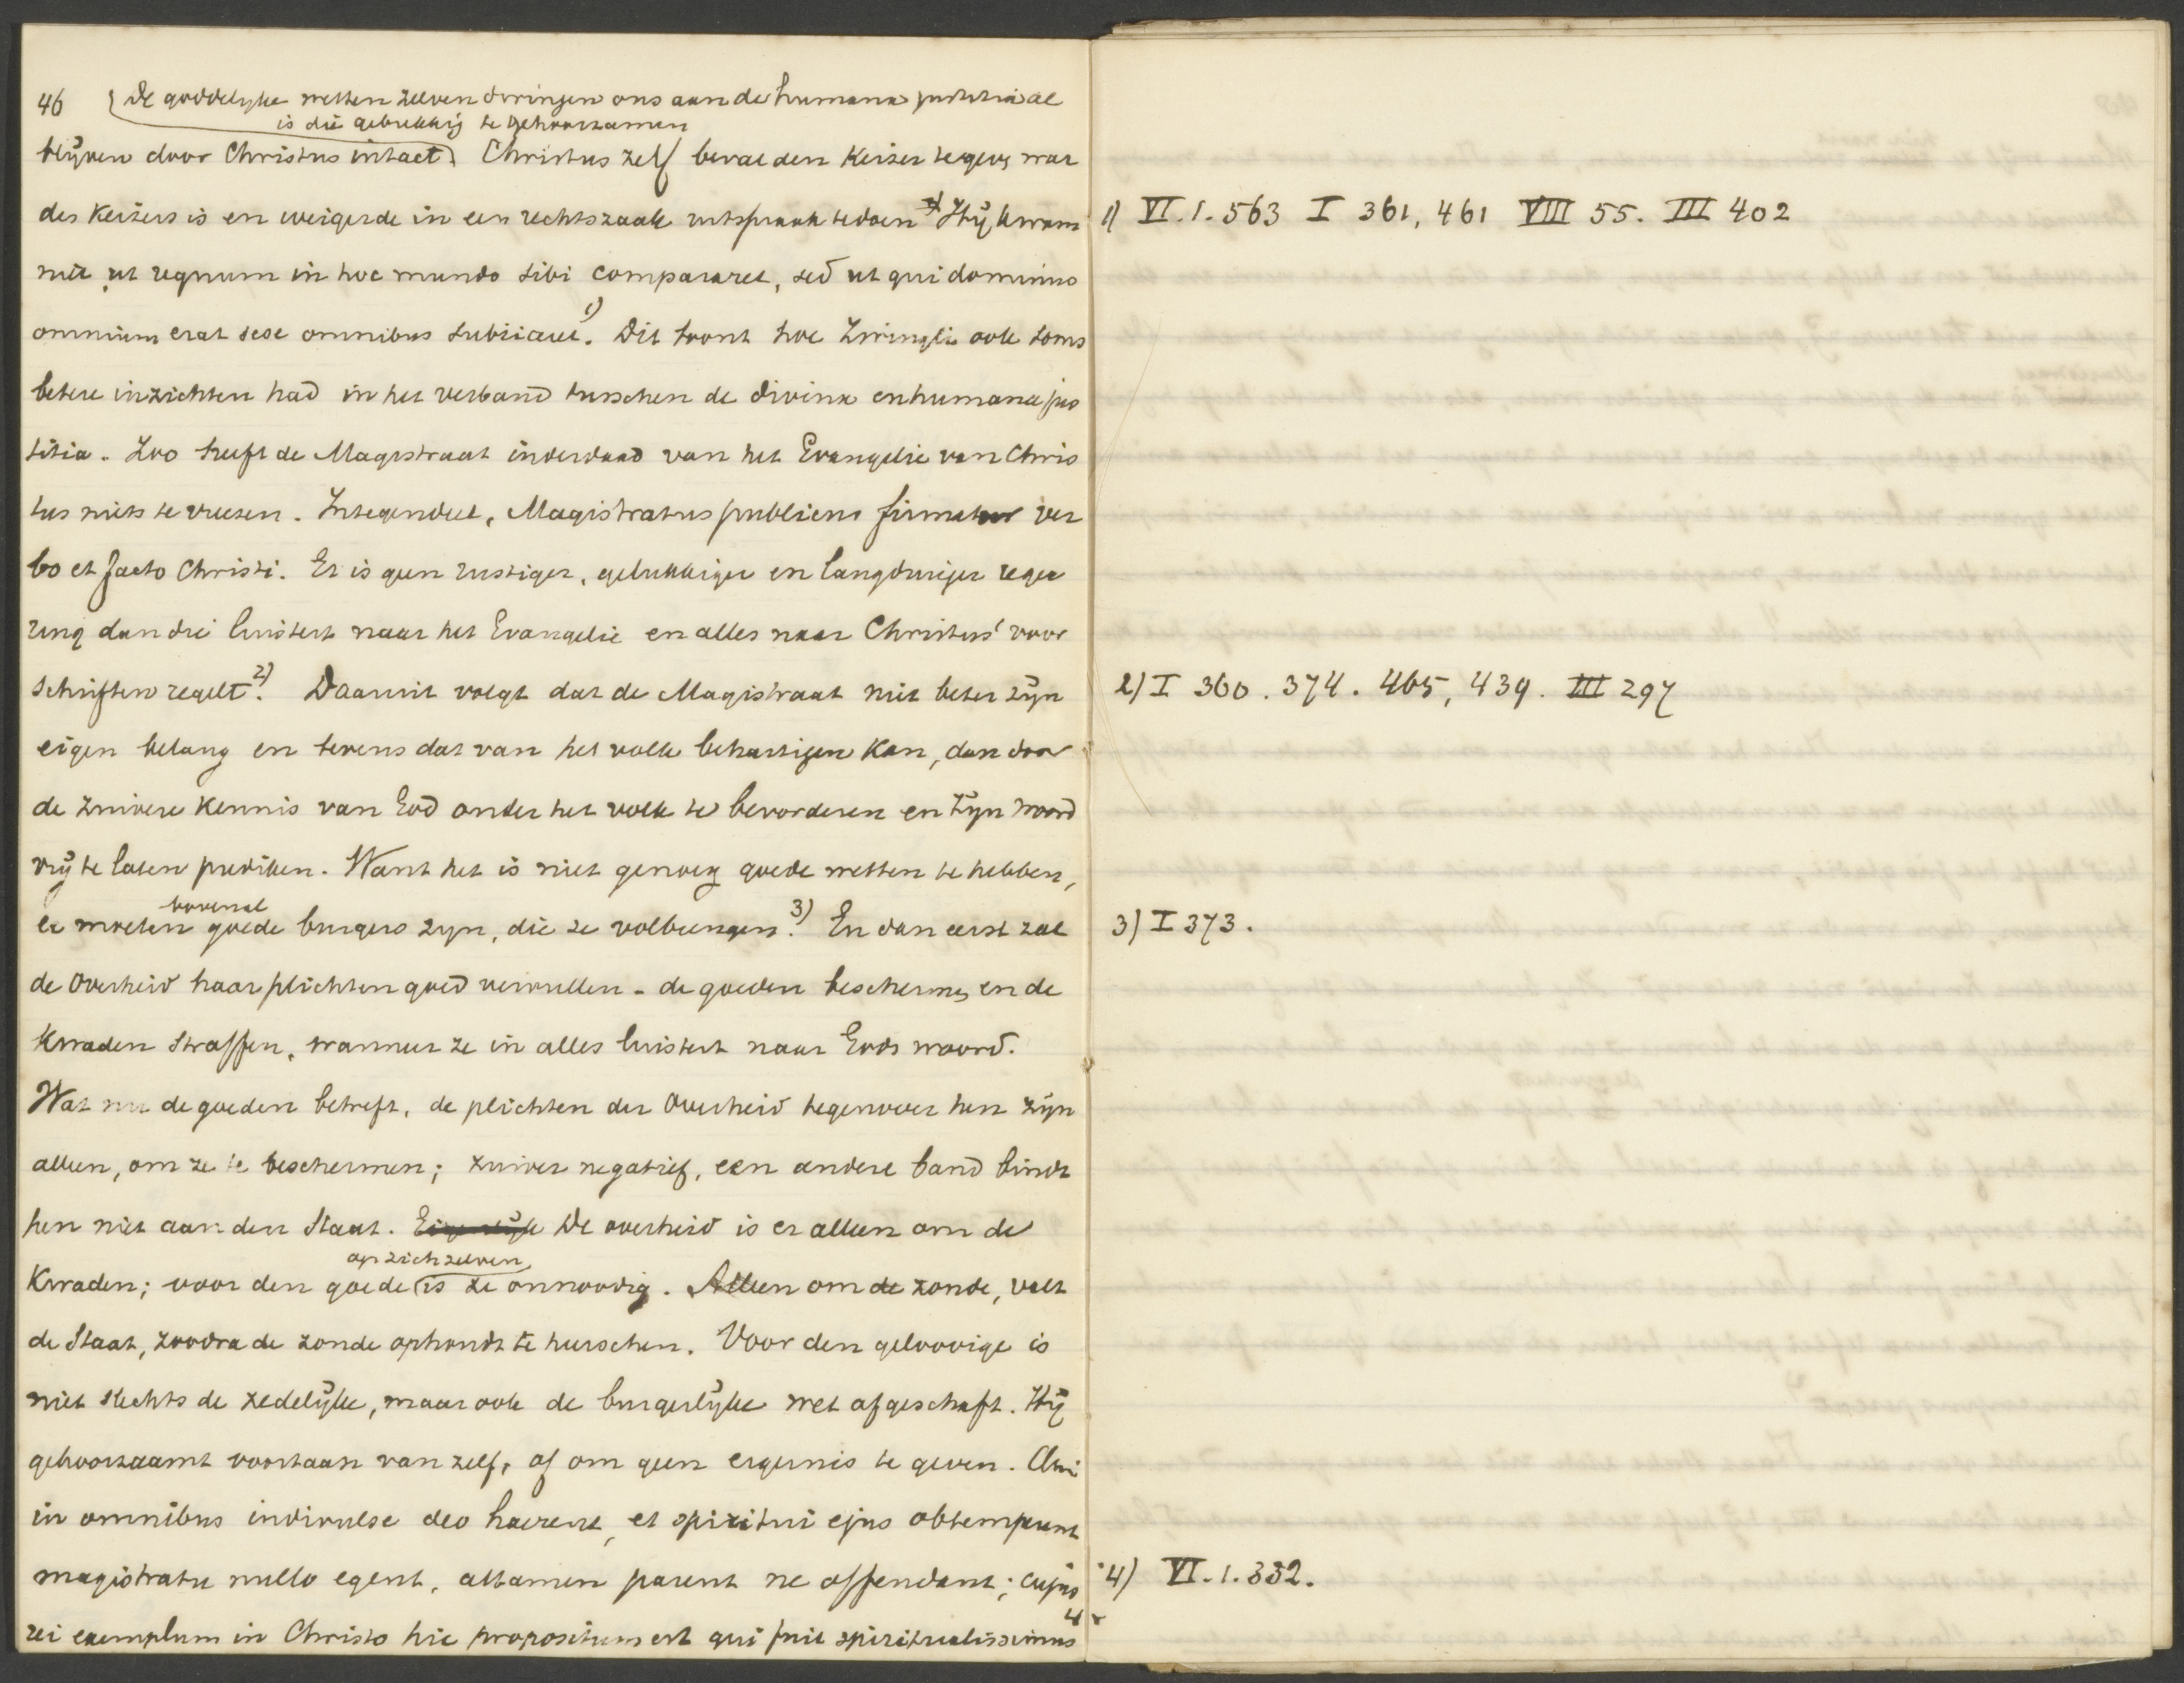 46 (De goddelyke wetten zelven dwingen ons aan de humana justitia al
is die gebrekkig te gehoorzamen
blijven door Christus intact) Christus zelf beval den Keizer te geven, wat
des Keizers is en weigerde in een rechtszaak uitspraak te doen Hij kwam
niet ut regnum in hoc mundo sibi compararet, sed ut qui dominus
omnium erat sese omnibus subiiceret.1) Dit toont hoe Zwingli ook soms
betere inzichten had in het verband tusschen de divina en humana jus
titia. Zoo heeft de Magistraat inderdaad van het Evangelie van Chris
tus niets te vreezen. Integendeel, Magistratus publicus firmatur ver
bo et facto Christi. Er is geen rustiger, gelukkiger en langduriger rege
ring dan die luistert naar het Evangelie en alles naar Christus' voor
schriften regelt2). Daaruit volgt dat de Magistraat niet beter zijn
eigen belang en tevens dat van het volk behartigen kan, dan door
de zuivere kennis van God onder het volk te bevorderen en Zijn woord
vrij te laten prediken. Want het is niet genoeg goede wetten te hebben,
er moeten bovenal goede burgers zyn, die ze volbrengen.3) En dan eerst zal
de Overheid haar plichten goed vervullen - de goeden beschermen, en de
Kwaden straffen, wanneer ze in alles luistert naar Gods woord.
Wat nu de goeden betreft, de plichten der Overheid tegenover hen zijn
alleen, om ze te beschermen; zuiver negatief, een andere band bindt
hen niet aan den Staat. De overheid is er alleen om de
Kwaden; voor den goede op zichzelven is ze onnoodig. Alleen om de zonde, valt
de Staat, zoodra de zonde ophoudt te heerschen. Voor den geloovige is
niet slechts de zedelijke, maar ook de burgerlijke wet afgeschaft. Hij
gehoorzaamt voortaan van zelf, of om geen ergernis te geven. Qui
in omnibus indivulse deo haerent, et spiritui ejus obtemperant
magistratu nullo egent, attamen parent ne offendant; cujus
rei exemplum in Christo hic propositum est qui fuit spiritualissimus 4
1) VI.1.563 I 361, 461 VIII 55. III 402
2) I 360. 374. 465, 439. III 297
3) I 373.
4) VI.1.332.